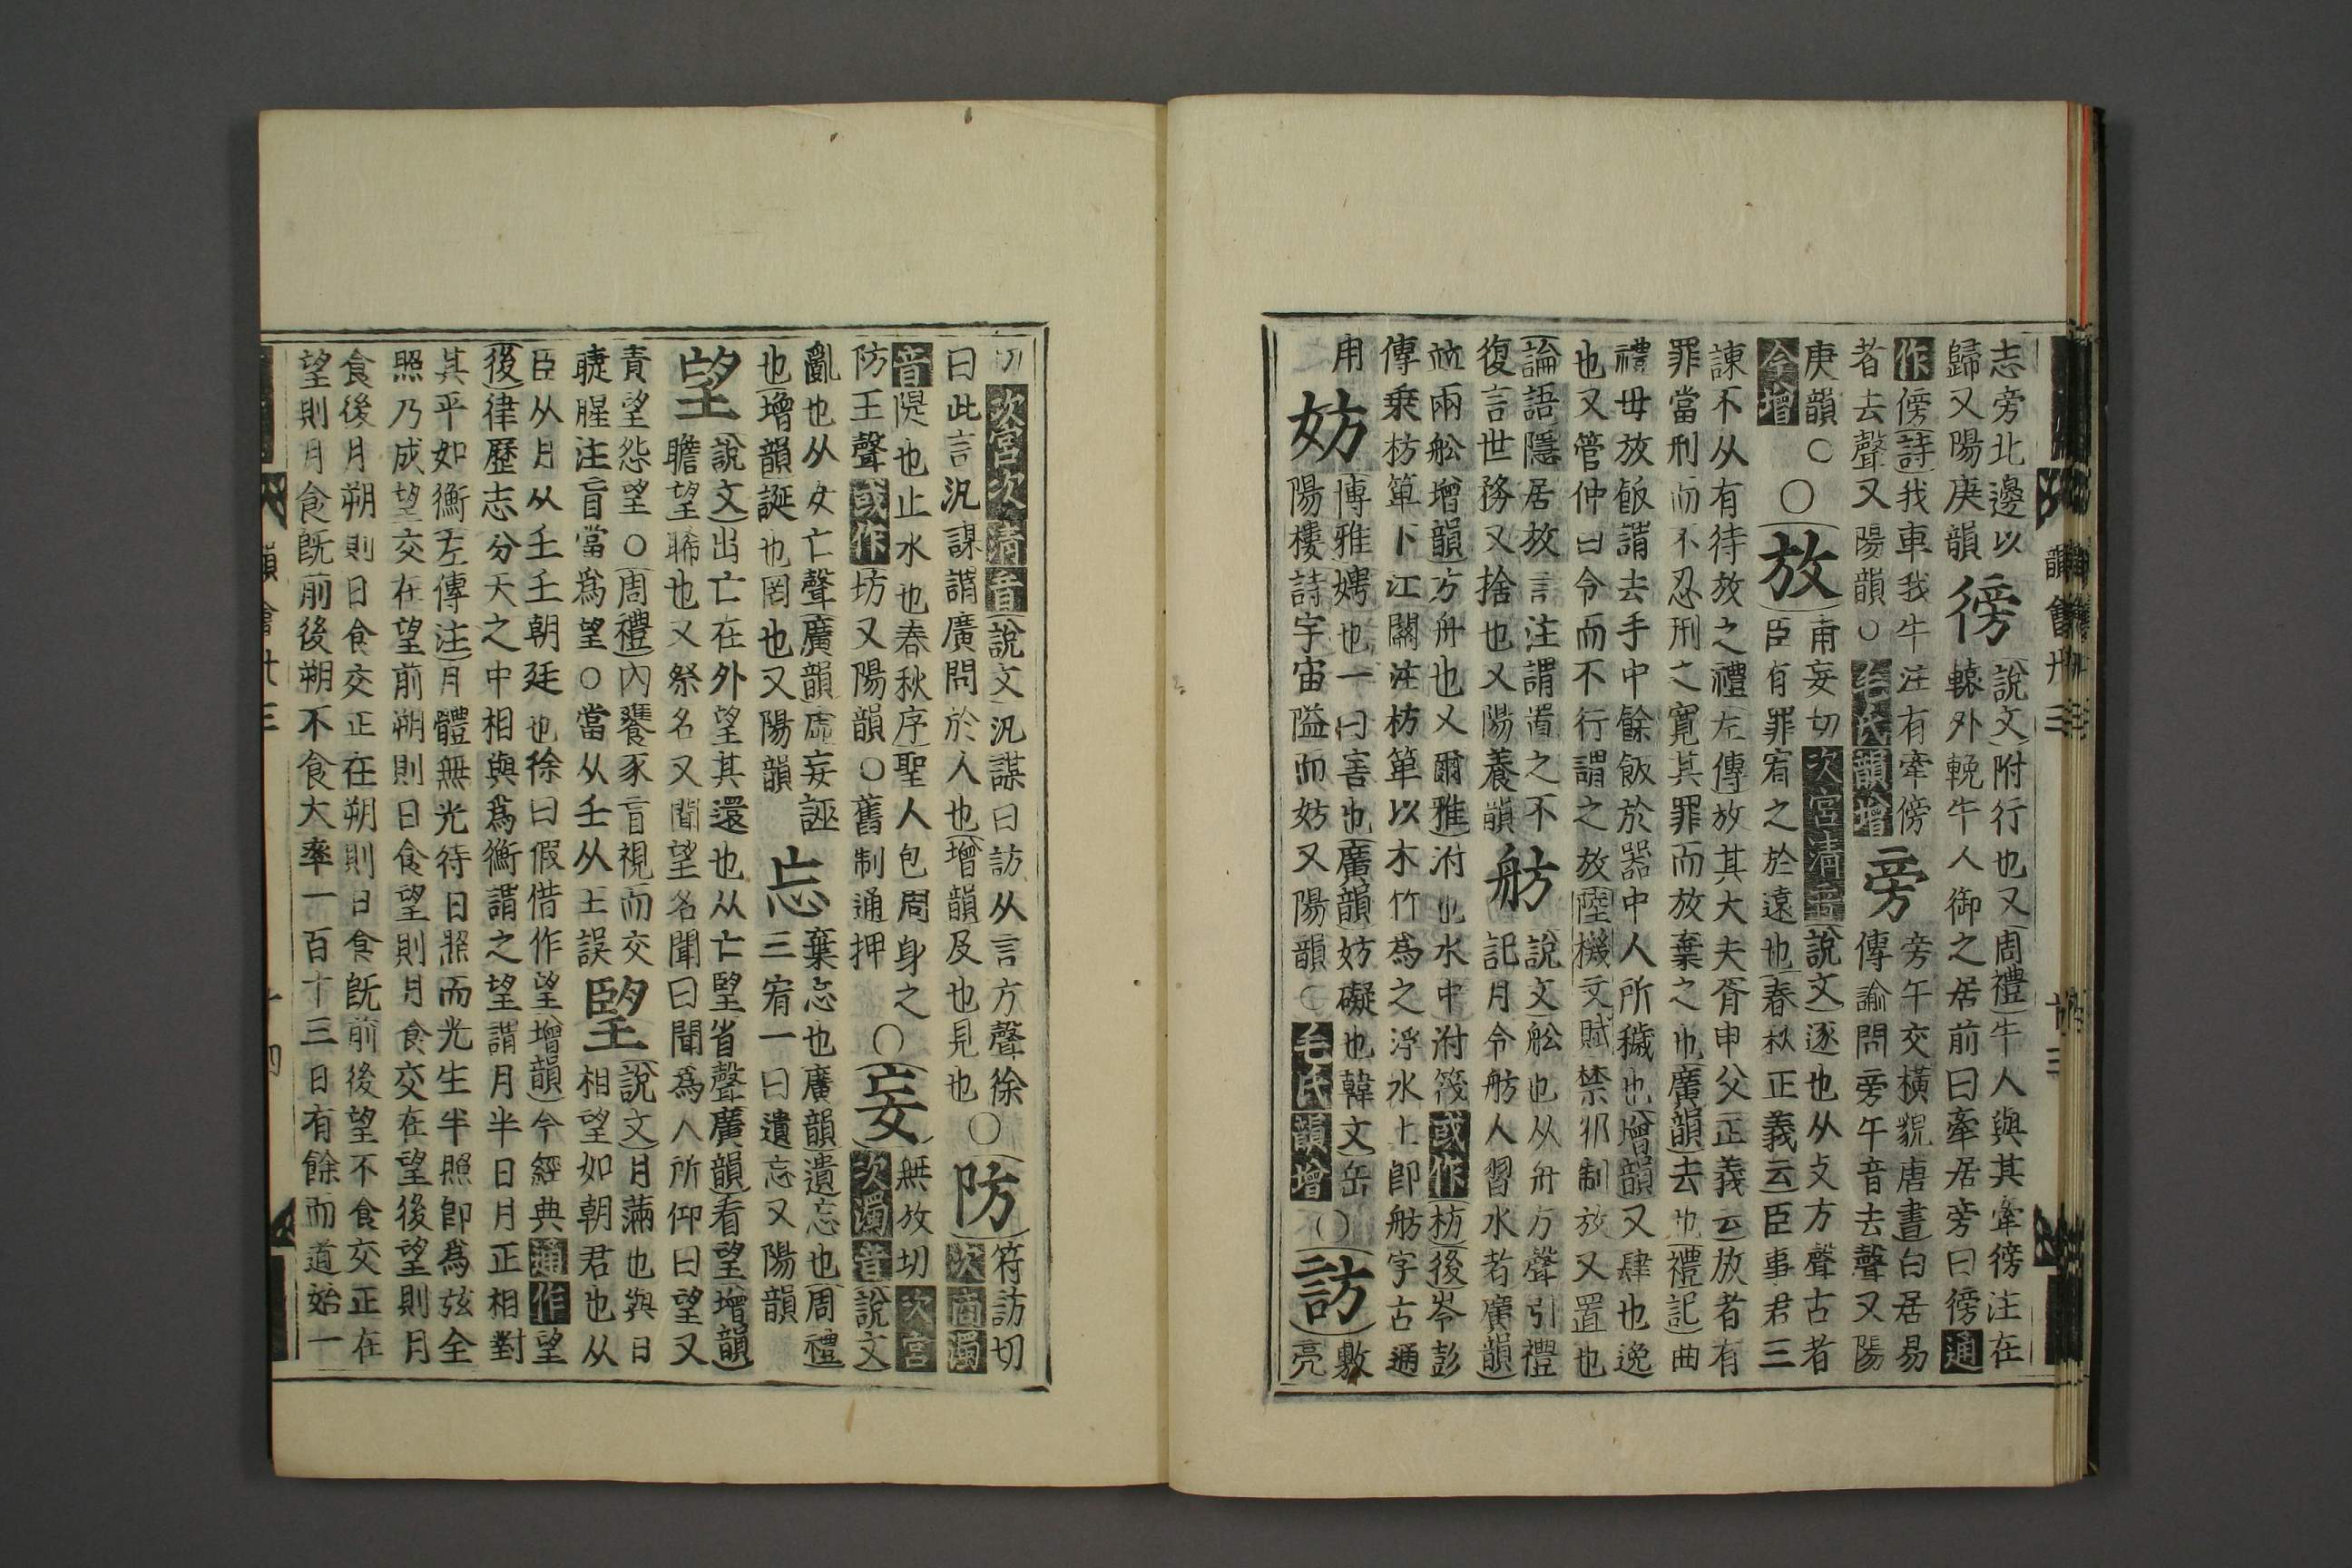 志旁北邊以
歸又陽庚韻
徬
說文附行也又周禮牛人與其牽徬注在
轅外輓牛人御之居前曰牽居旁曰徬通
作傍詩我車我牛注有牽傍
者去聲又陽韻○毛氏韻增
旁
旁午交橫貌唐書白居易
傳諭問旁午音去聲又陽
庚韻○
今增
○放
甫妄切次宮清音說文逐也从攴方聲古者
臣有罪宥之於遠也春秋正義云臣事君三
諫不从有待放之禮左傳放其大夫胥申父正義云放者有
罪當刑而不忍刑之寬其罪而放棄之也廣韻去也禮記曲
禮毋放飯謂去手中餘飯於器中人所穢也增韻又肆也逸
也又管仲曰令而不行謂之放陸機文賦禁邪制放又置也
論語隱居放言注謂置之不
復言世務又捨也又陽養韻
舫
說文舩也从舟方聲引禮
記月令舫人習水者廣韻
並兩舩增韻方舟也又爾雅泭也水中泭筏或作枋後岑彭
傳乗枋箄下江關注枋箄以木竹為之浮水上即舫字古通
用
妨
博雅娉也一曰害也廣韻妨礙也韓文岳
陽樓詩宇宙隘而妨又陽韻○毛氏韻增
○訪
敷
亮
切次宮次清音說文汎謀曰訪从言方聲徐
曰此言汎謀謂廣問於人也增韻及也見也
○防
符訪切
次商濁
音隄也止水也春秋序聖人包周身之
防王聲或作坊又陽韻○舊制通押
○妄
無放切次宮
次濁音說文
亂也从女亡聲廣韻虛妄誣
也增韻誕也罔也又陽韻
忘
棄忘也廣韻遺忘也周禮
三宥一曰遺忘又陽韻
望
說文出亡在外望其還也从亡朢省聲廣韻看望增韻
瞻望睎也又祭名又聞望名聞曰聞為人所仰曰望又
責望怨望○周禮內饔豕盲視而交
睫腥注盲當為望○當从壬从王誤
朢
說文月滿也與日
相望如朝君也从
臣从月从壬壬朝廷也徐曰假借作望增韻今經典通作望
後律歷志分天之中相與為衡謂之望謂月半日月正相對
其平如衡左傳注月體無光待日照而光生半照即為弦全
照乃成望交在望前朔則日食望則月食交在望後望則月
食後月朔則日食交正在朔則日食旣前後望不食交正在
望則月食旣前後朔不食大率一百十三日有餘而道始一